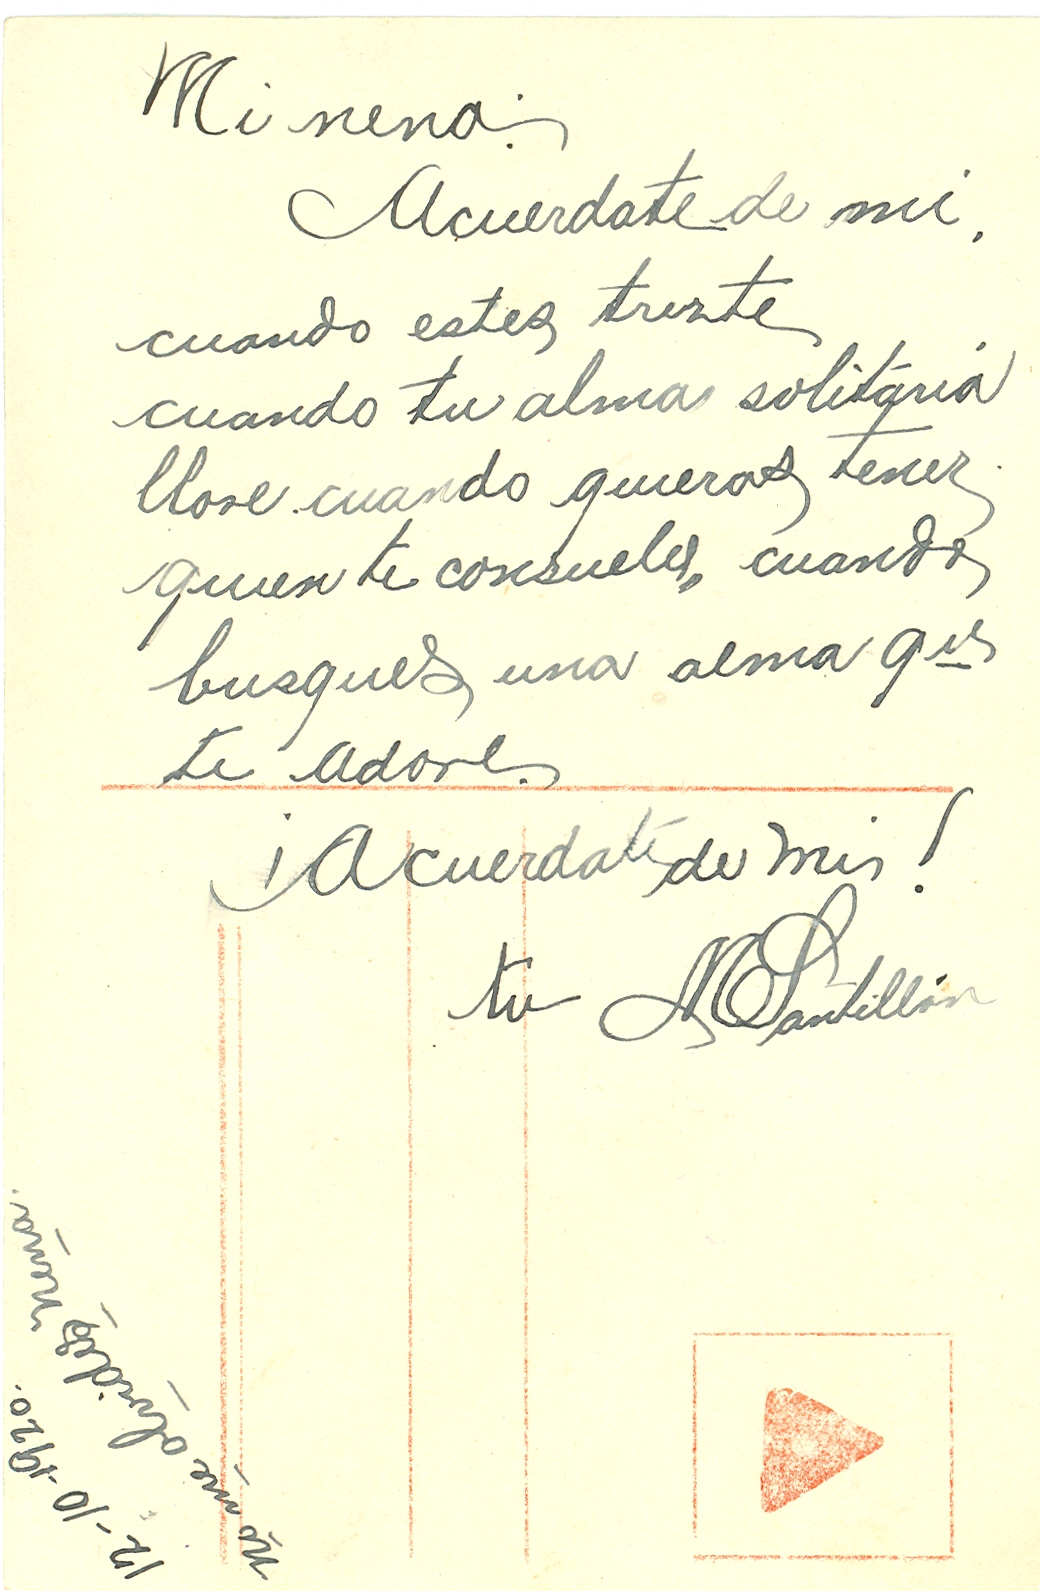 Mi nena:
Acuerdate de mi,
cuando estes triste
cuando tu alma solitária
llore cuando quieras tener
quien te consuele, cuando
busques una alma que
te adore.
¡Acuerdate de mi!
tu M Santillán
no me olvides nena.
12-10-1920.